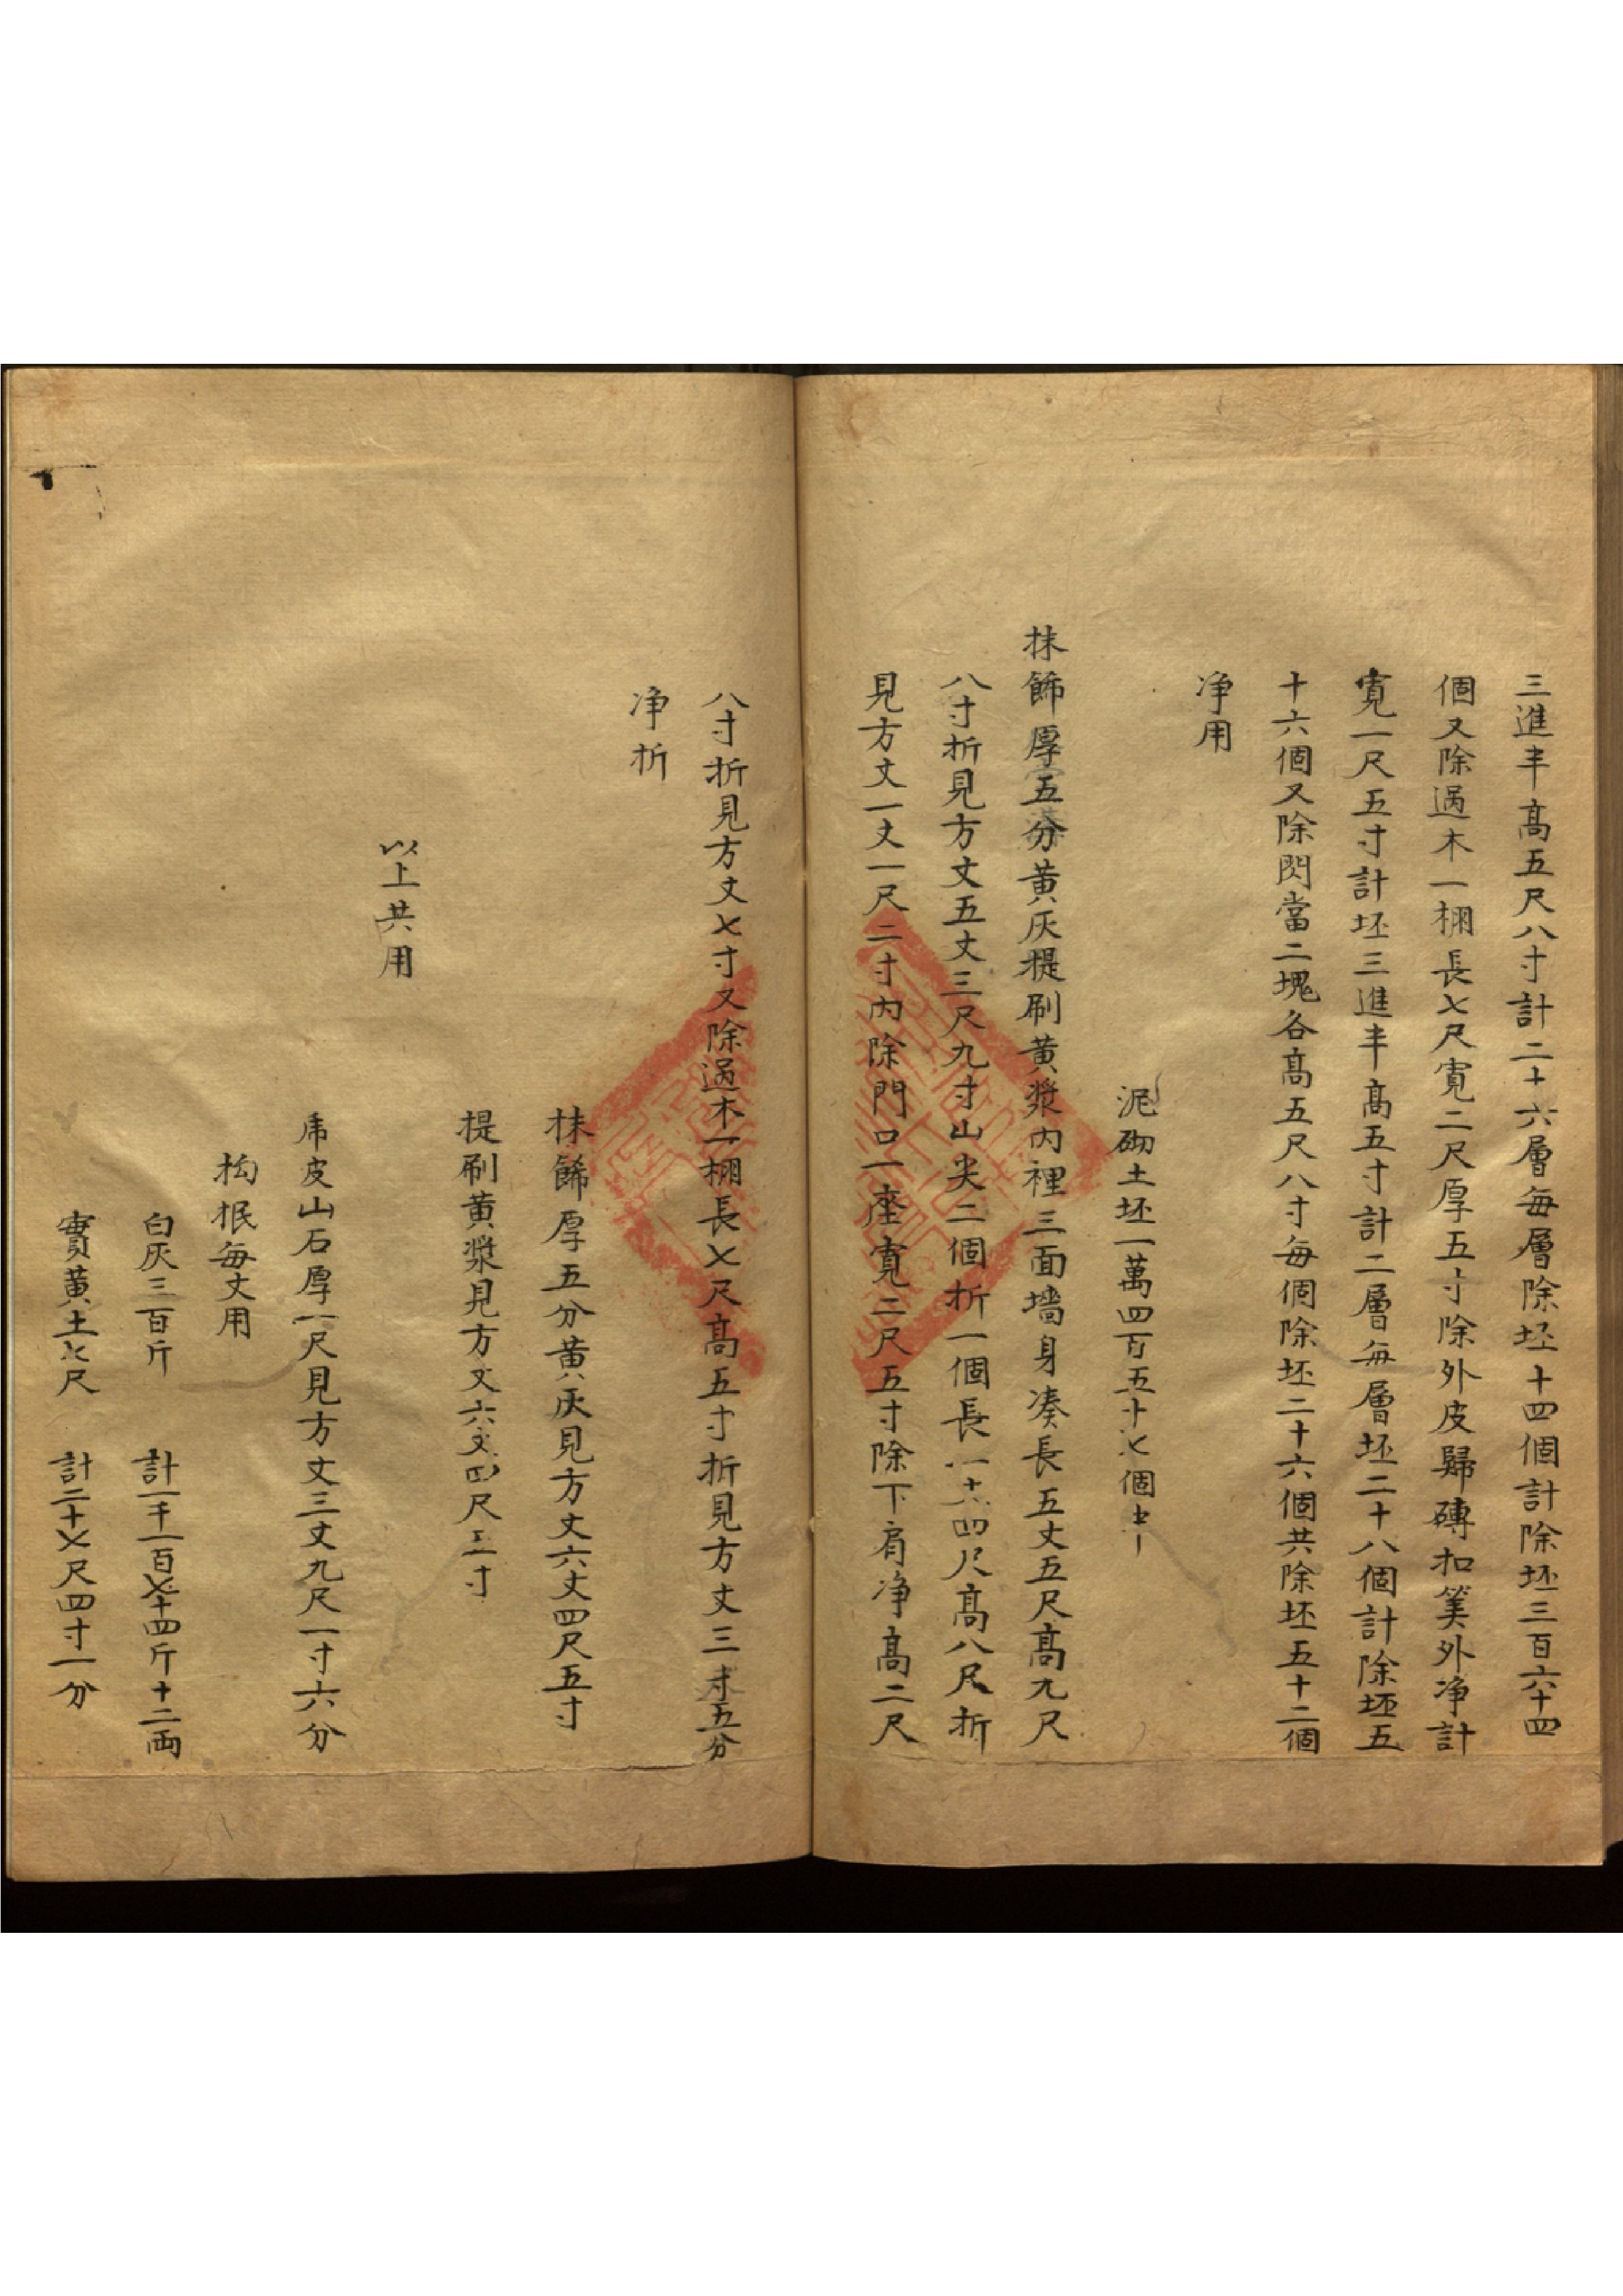 三進半高五尺八寸計二十六層每層除坯十四個計除坯三百六十四
個又除過木一棚長七尺寬二尺厚五寸除外皮歸磚扣筭外净計
寬一尺五寸計坯三進半高五寸計二層每層坯二十八個計除坯五
十六個又除閃當二塊各高五尺八寸每個除坯二十六個共除坯五十二個
净用
泥砌土坯一萬四百五十七個半
抹餙厚五分黄灰提刷黄漿内裡三面墻身凑長五丈五尺高九尺
八寸折見方丈五丈三尺九寸山尖二個折一個長一丈四尺高八尺折
見方丈一丈一尺二寸内除門口一座寬二尺五寸除下肩净高二尺
八寸折見方丈七寸又除過木一棚長七尺高五寸折見方丈三寸五分
净折
抹餙厚五分黄灰見方丈六丈四尺五寸
提刷黄漿見方丈六丈四尺三寸
以上共用
乕皮山石厚一尺見方丈三丈九尺一寸六分
抅抿每丈用
白灰三百斤 計一千一百七十四斤十二両
實黄土七尺 計二十七尺四寸一分